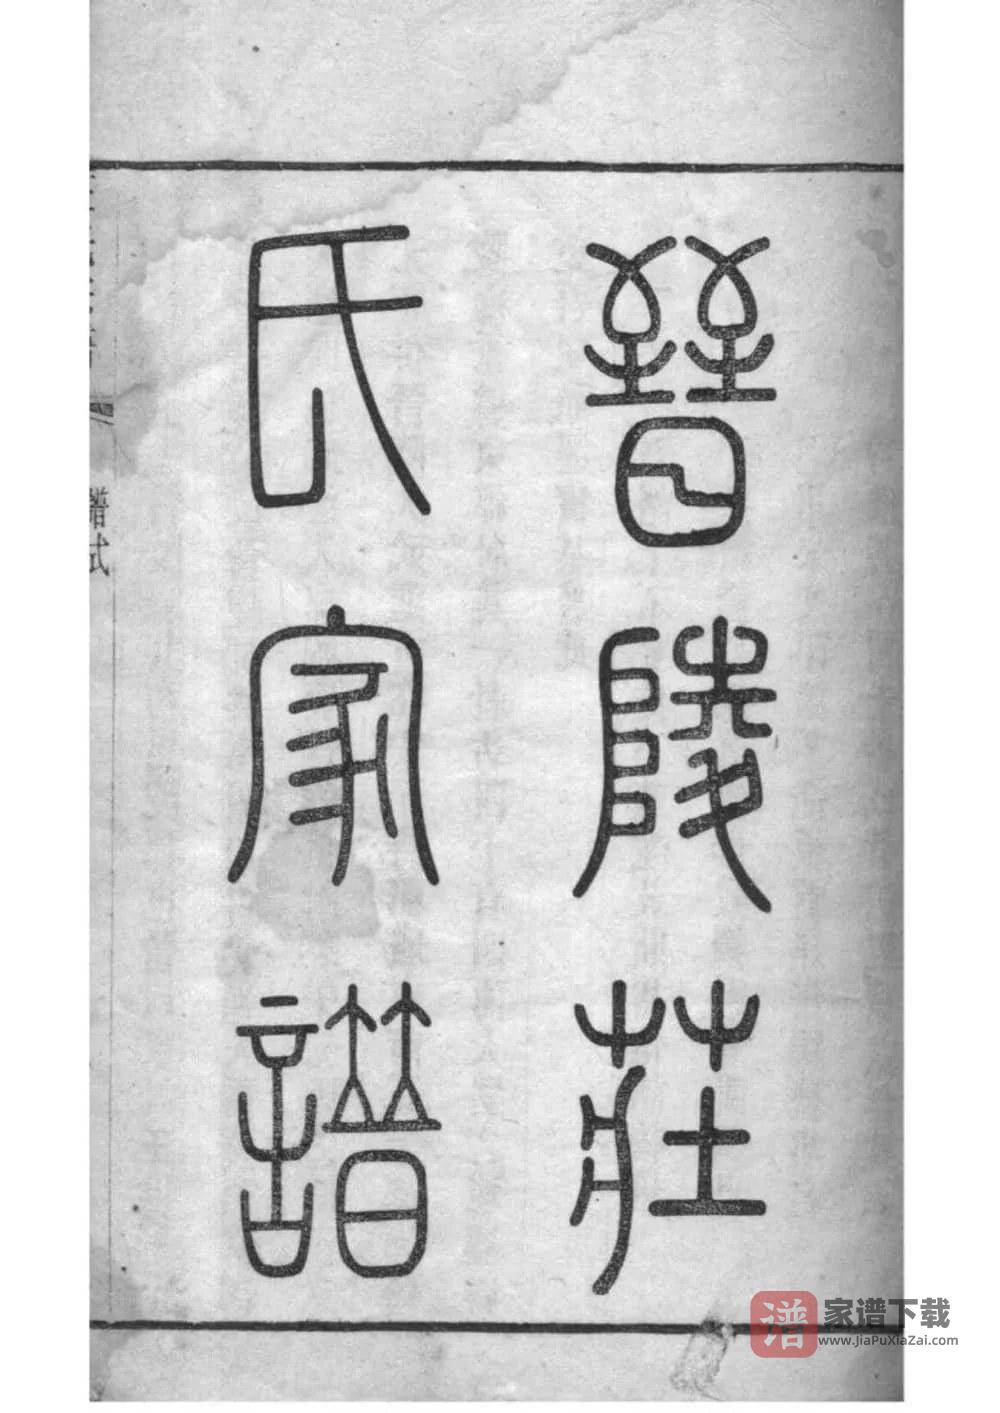 晉陵莊
氏家譜
譜式
谱 家谱下载
www.JiaPuXiaZai.com